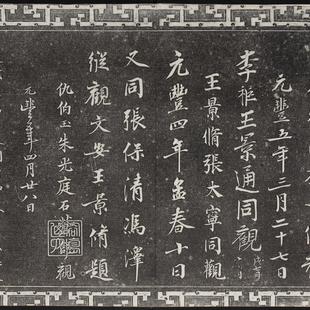 元豐五年三月二十七日
李 王景通同觀
王景脩張太寧同觀
元豐四年孟春十日
又同張保清馮澤
縱觀文安王景脩題
仇伯玉朱光庭石 觀
元豐 年四月廿八日